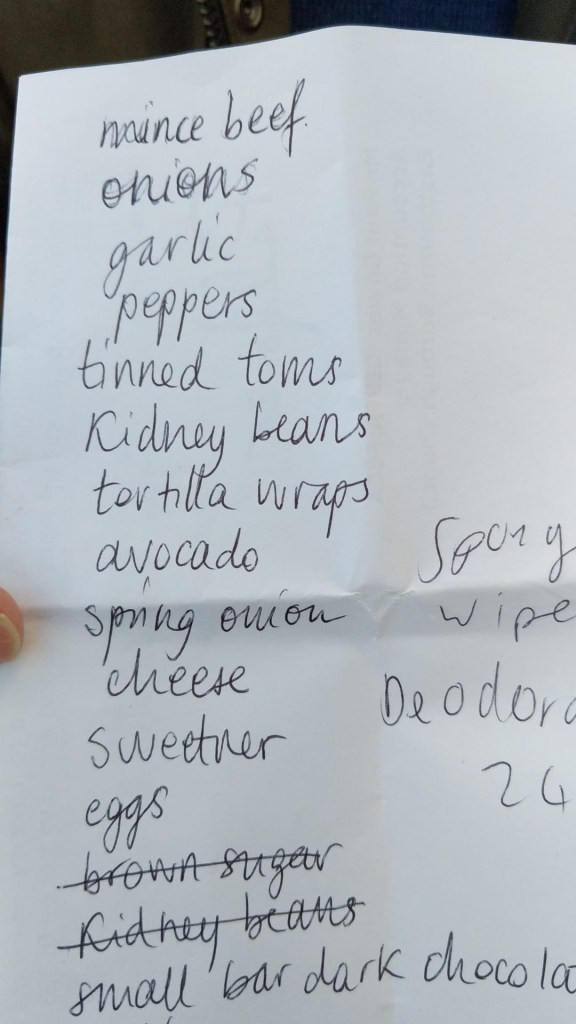 mince beef
onions
garlic
peppers
tinned toms
Kidney beans
tortilla wraps
avocado
spring onion
cheese
sweetner
eggs
brown sugar
Kidney beans
small bar dark chocola
wipe
Deodora
24